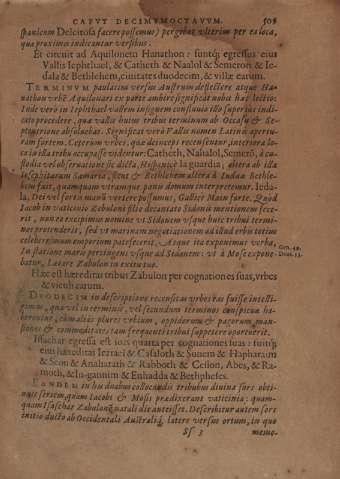 CAPVT DECIMVMOCTAVVM. 505
spanicum Delcitosa facere possemus) pergebat vlterim per ea loca,
quæ proximo indicantur versibus.
Et circuit ad Aquilonem Hanathon : suntq; egressus eius
Vallis Iephtluel, & Catheth & Naalol & Semeron & Ie-
dala & Bethlehem, ciuitates duodecim, & villæ earum.
TERMINVM paulatim versus Austrum deflectere atque Ha-
nathon vrbē Aquilonari ex parte ambire significat nobis hæc lectio:
Inde verò in Iephthael vallem insignem consimilia illo superius indi-
cato procedere, quæ vallis huius tribus terminum ab Occasu & Se-
ptentrione absoluebat. Significat verò Vallis nomen Latinis apertu-
ram fortem. Ceterùm vrbes, quæ deinceps recensentur, interiora lo-
ca in ista tribu occupasse videntur: Catheth, Nahalol, Semerō, à cu-
stodia vel obseruatione sic dicta, Hispanicè la guardia; altera ab illa
Iosephitarum Samaria, sicut & Bethlehem altera à Iudæa Bethle-
hem fuit, quamquam vtramque panis domum interpretemur. Ieda-
la, Dei vel fortis manū vertere possumus, Gallicè Main forte. Quod
Iacob in vaticinio Zabuloni filio decantato Sidonis mentionem fece-
rit, non ea excipimus nomine vt Sidonem vsque huic tribui termi-
nus protenderit, sed vt marinam negotiationem ad illud orbis totius
celeberrimum emporium patefecerit. Atque ita exponimus verba,
In statione maris pertingens vsque ad Sidonem: vt à Mose expone-
batur, Lætare Zabulon in exitu tuo.
Gen. 49.
Deut. 33.
Hæc est hereditas tribus Zabulon per cognationes suas, vrbes
& viculi earum.
DVODECIM in descriptione recensitas vrbes eas fuisse intelli-
gimus, quæ vel in terminis, vel secundum terminos conspicuæ ha-
berentur, cum aliàs plures vrbium, oppidorum & pagorum, man-
siones & commoditates tam frequenti tribui suppetere oporteret.
Issachar egressa est sors quarta per cognationes suas : suntq;
eius hæreditas Iezrael & Casaloth & Sunem & Hapharaim
& Seon & Anaharath & Rabboth & Cesion, Abes, & Ra-
meth, & In-gannim & Enhadda & Bethpheses.
EANDEM in his duabus collocandis tribubus diuina sors obti-
nuit seriem, quam Iacobi & Mosis prædixerant vaticinia: quam-
quam Isaschar Zabulonē natali die anteisset. Describitur autem sors
initio ducto ab Occidentali Australiq; latere versus ortum, in quo
Ss 3 mesuo-